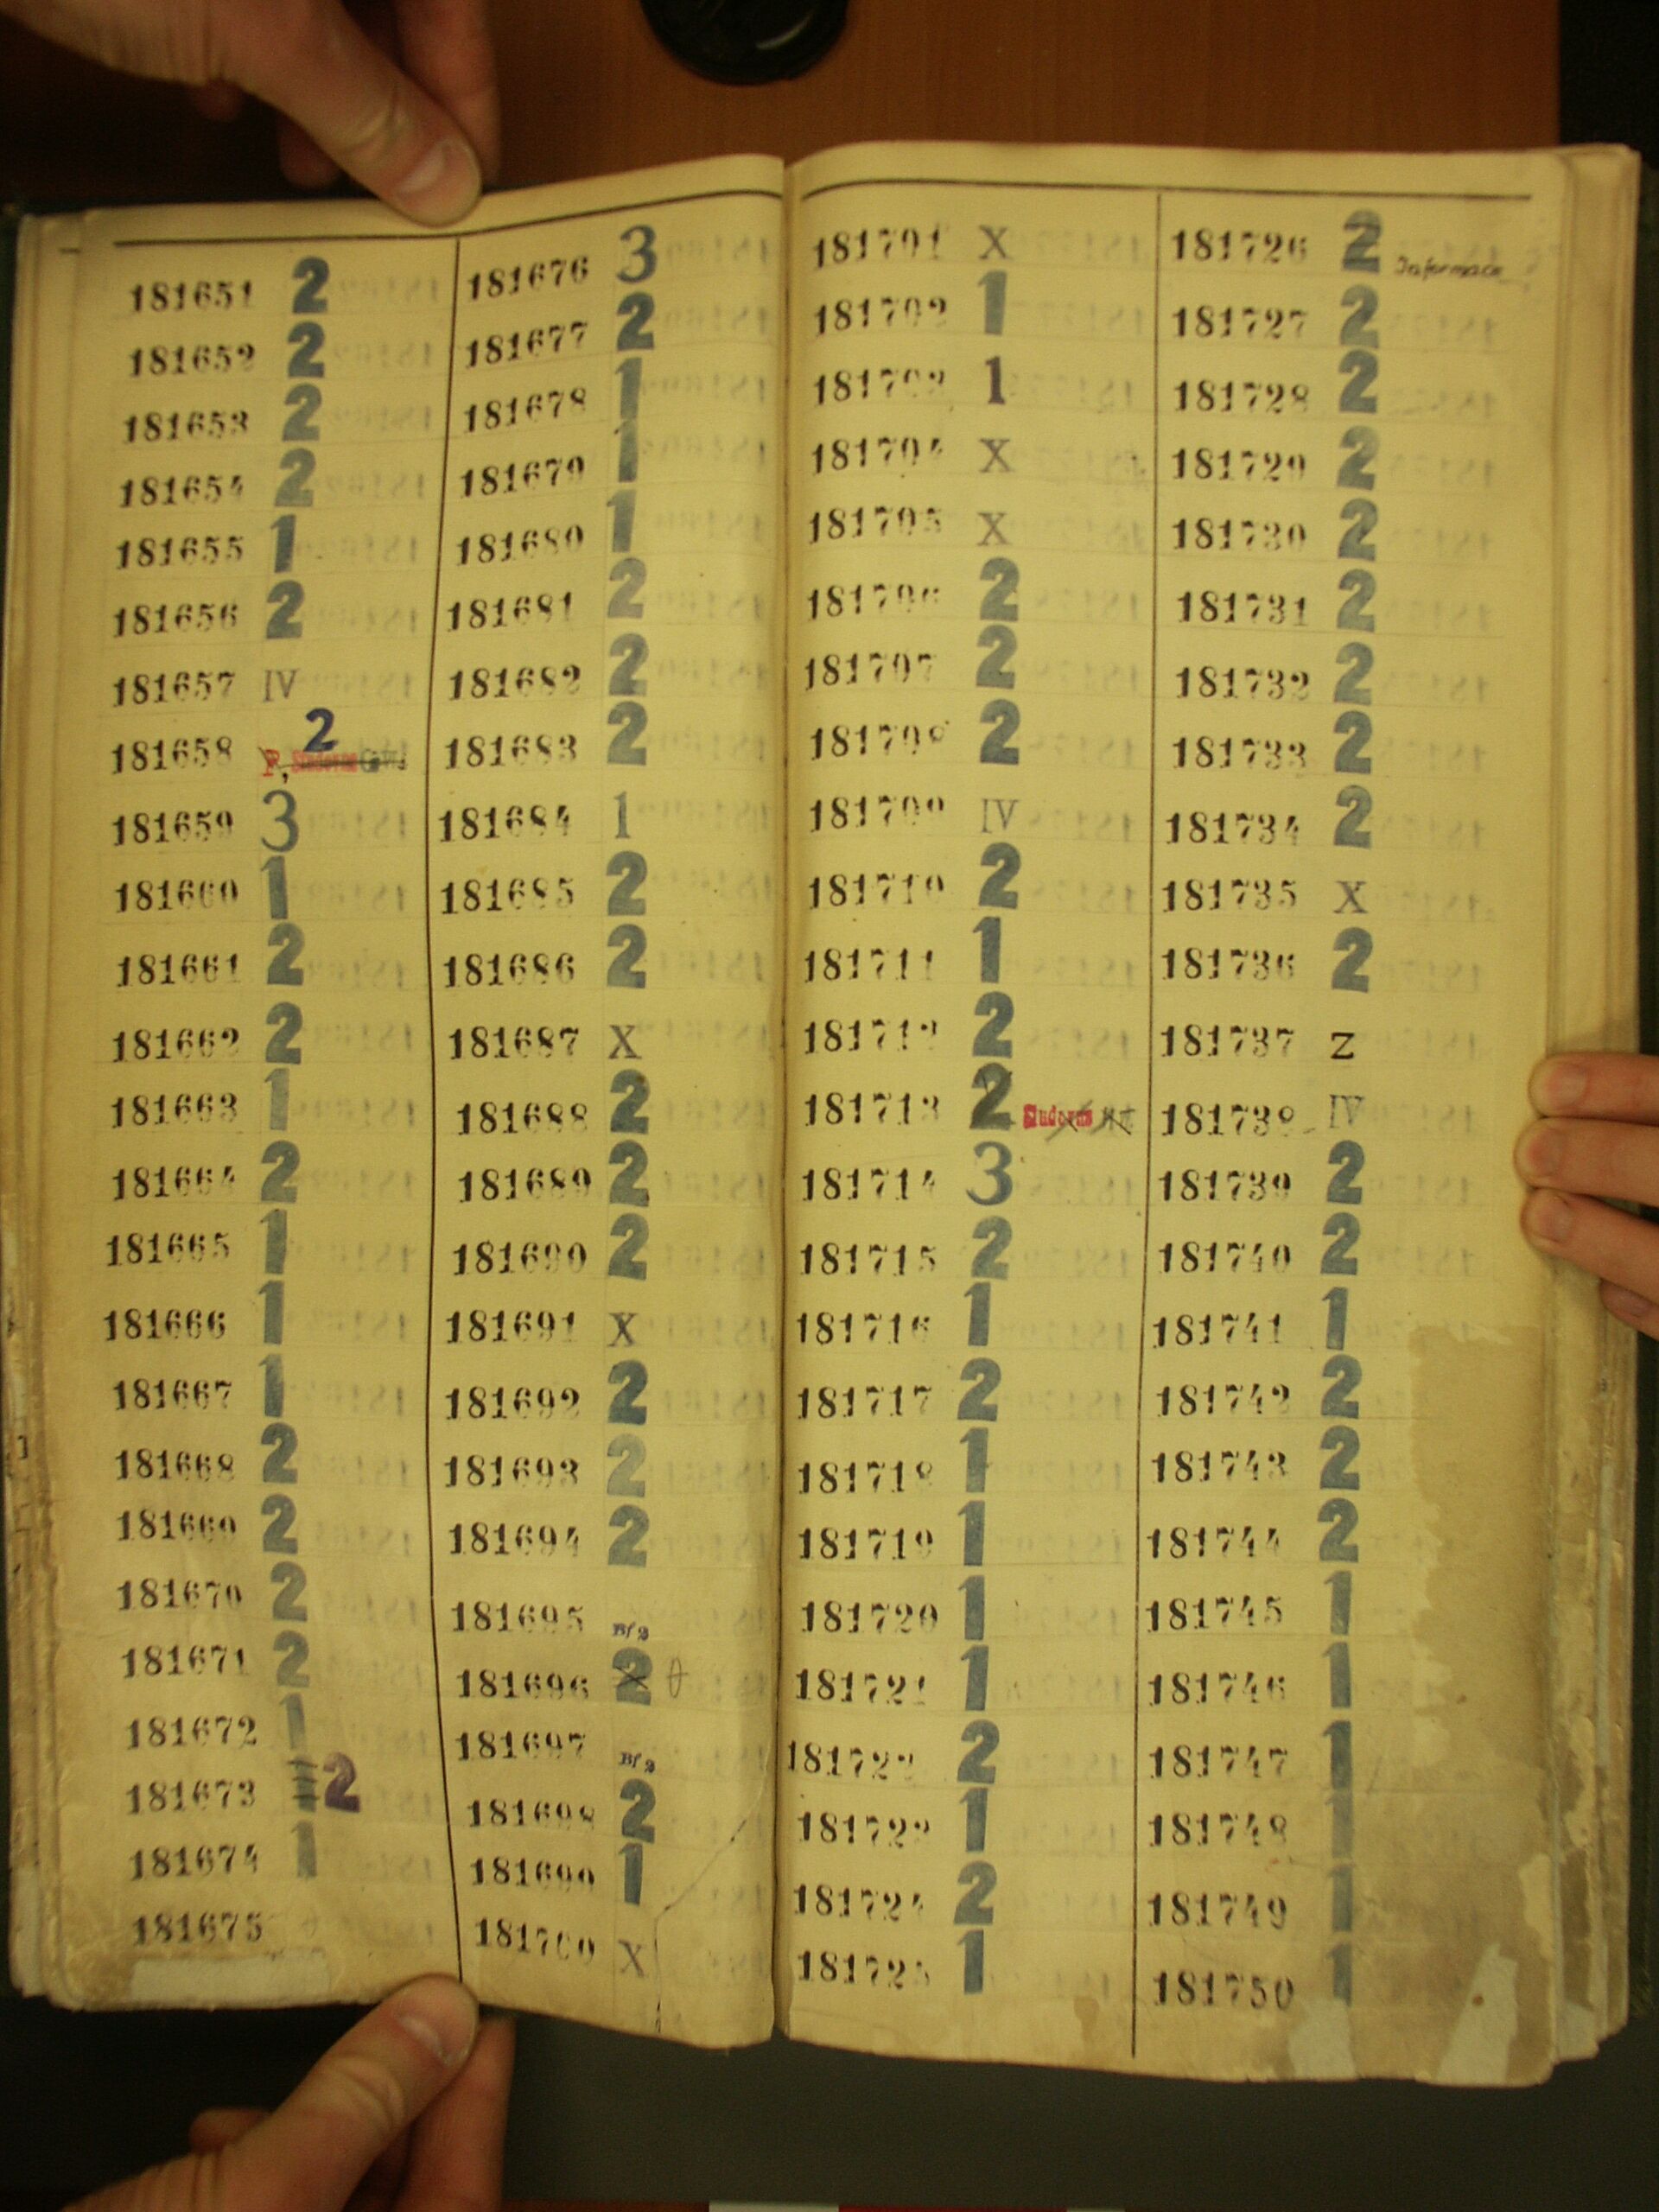 181651 2
181652 2
181653 2
181654 2
181655 1
181656 2
181657 IV
181658 2
181659 3
181660 1
181661 2
181662 2
181663 1
181664 2
181665 1
181666 1
181667 1
181668 2
181669 2
181670 2
181671 2
181672 1
181673 2
181674 1
181675
181676 3
181677 2
181678 1
181679 1
181680 1
181681 2
181682 2
181683 2
181684 1
181685 2
181686 2
181687 X
181688 2
181689 2
181690 2
181691 X
181692 2
181693 2
181694 2
181695 Bf 2
181696 2 0
181697 Bf 2
181698 2
181699 1
181700 X
181701 X
181702 1
181703 1
181704 X
181705 X
181706 2
181707 2
181708 2
181709 IV
181710 2
181711 1
181712 2
181713 2
181714 3
181715 2
181716 1
181717 2
181718 1
181719 1
181720 1
181721 1
181722 2
181723 1
181724 2
181725 1
181726 2 Informace
181727 2
181728 2
181729 2
181730 2
181731 2
181732 2
181733 2
181734 2
181735 X
181736 2
181737 Z
181738 IV
181739 2
181740 2
181741 1
181742 2
181743 2
181744 2
181745 1
181746 1
181747 1
181748 1
181749 1
181750 1